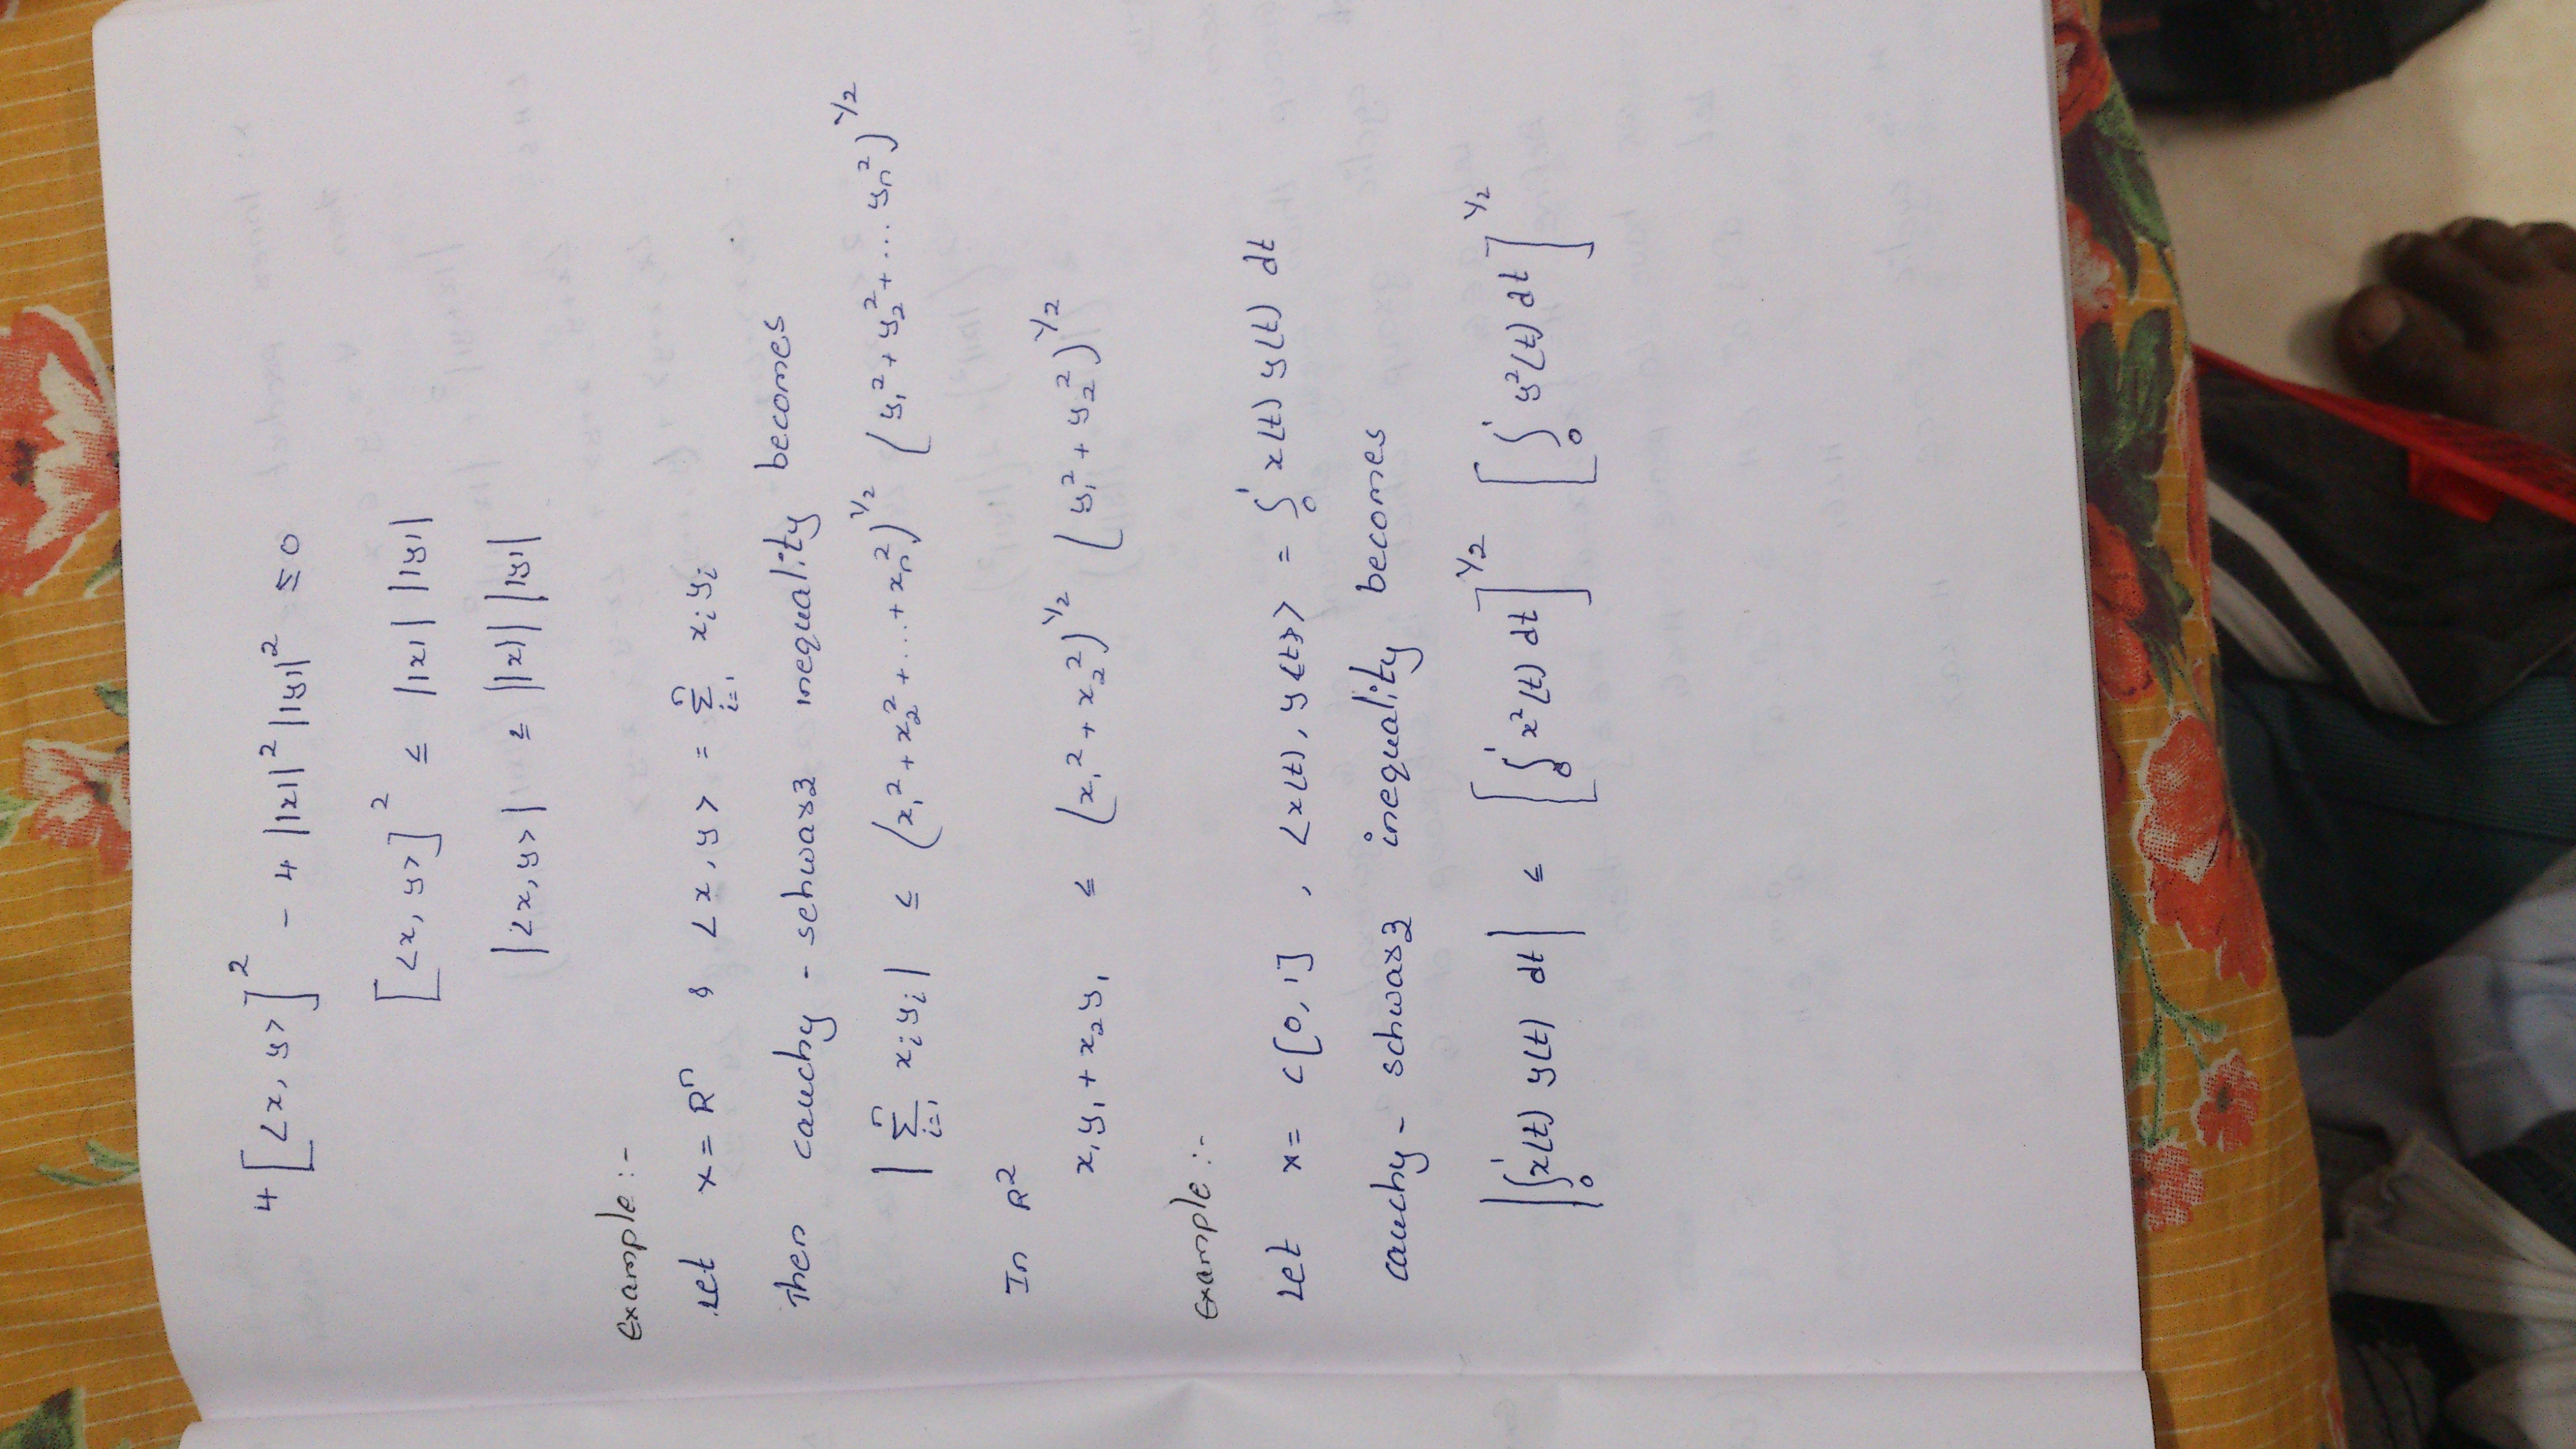 4[<x, y>]² - 4||x||² ||y||² ≤ 0
[<x, y>]² ≤ ||x|| ||y||
|<x, y>| ≤ ||x|| ||y||
Example :-
Let x = Rⁿ & <x, y> = Σⁿᵢ₌₁ xᵢyᵢ
Then cauchy - schwarz inequality becomes
|Σⁿᵢ₌₁ xᵢyᵢ| ≤ (x₁² + x₂² + .... + xₙ²)^1/2 (y₁² + y₂² + ... yₙ²)^1/2
In R²
x₁y₁ + x₂y₁ ≤ (x₁² + x₂²)^1/2 (y₁² + y₂²)^1/2
Example :-
Let x = c[0, 1] , <x(t), y(t)> = ∫₀¹ x(t) y(t) dt
cauchy - schwarz inequality becomes
|∫₀¹ x(t) y(t) dt| ≤ [∫₀¹ x²(t) dt]^1/2 [∫₀¹ y²(t) dt]^1/2